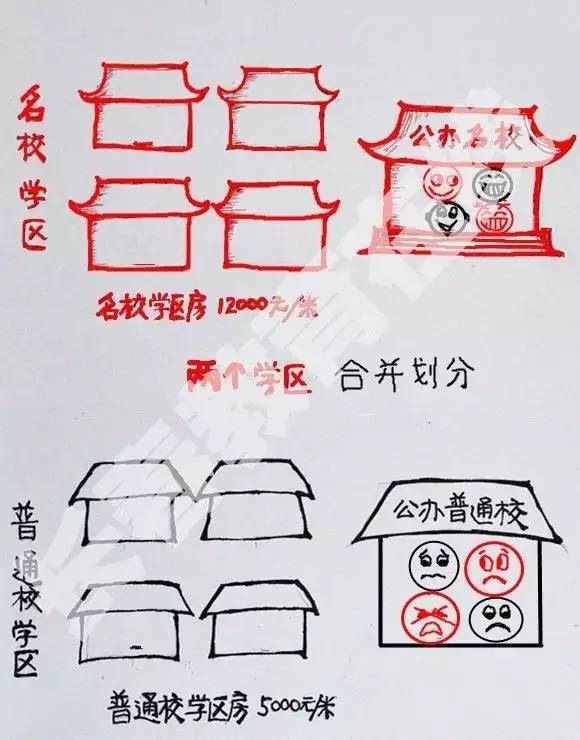 名校学区
公办名校
名校学区房 12000元/米
两个学区 合并划分
普通校学区
公办普通校
普通校学区房 5000元/米